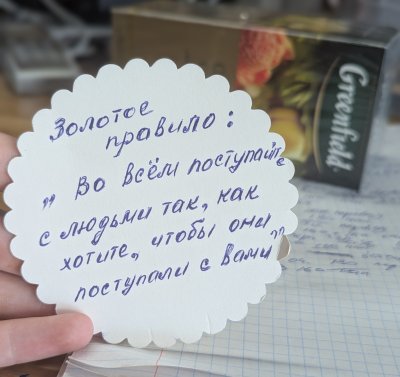 Золотое
правило:
„ Во всём поступайте
с людьми так, как
хотите, чтобы они
поступали с вами"
Greenfield